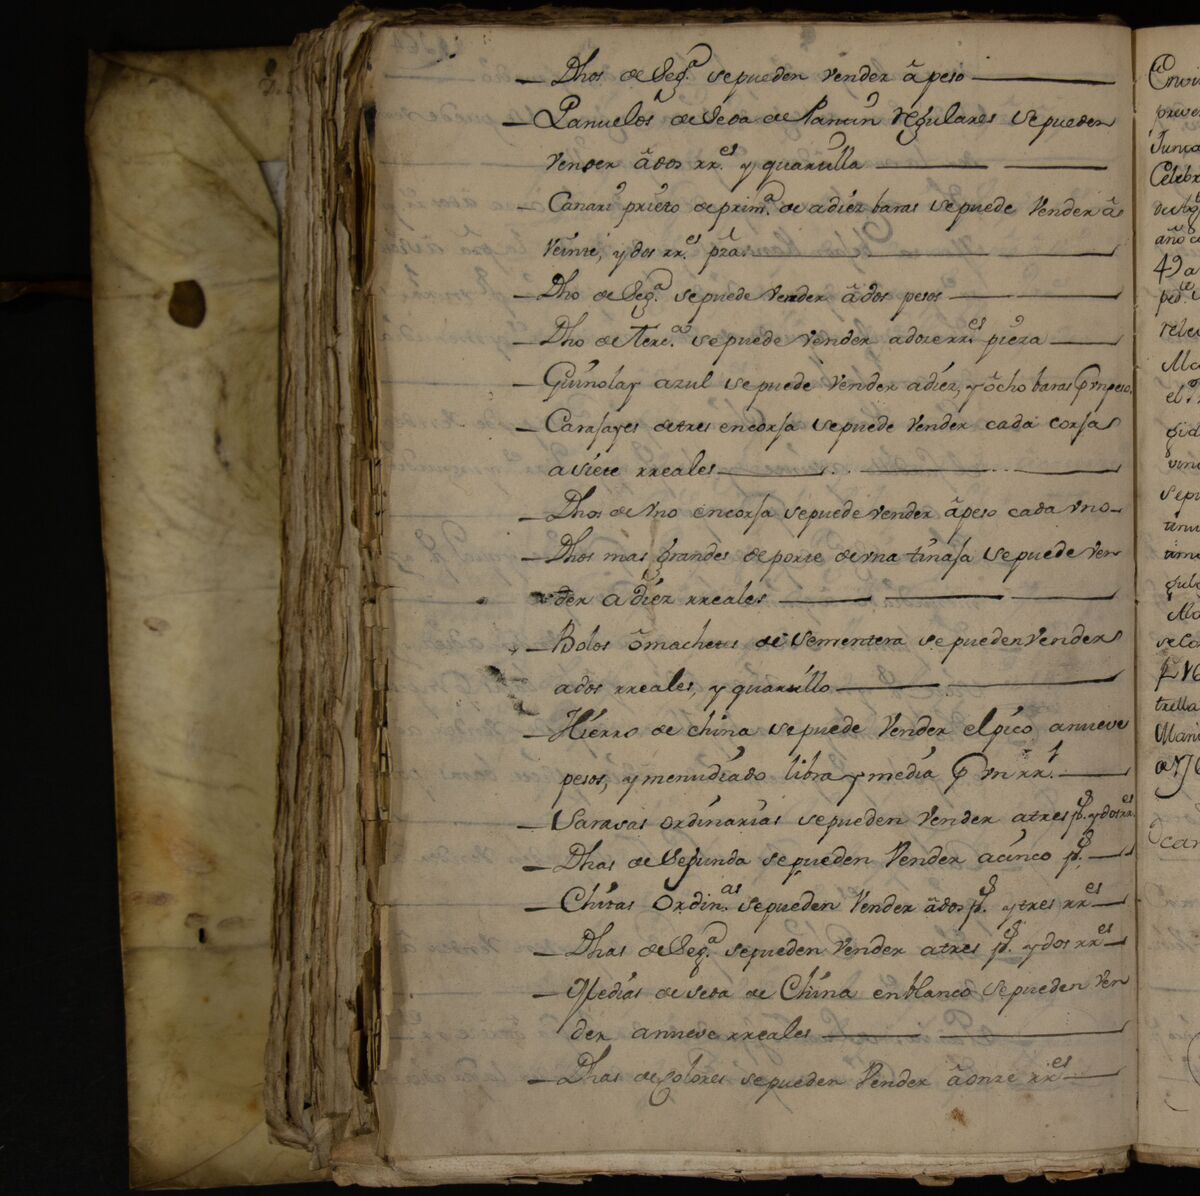 Dhos de Seg.ª se pueden Vender â peso
Panuelos de Seda de Lancin regulares se pueden
Vender â dos rr.es y quartilla
Canari prieto de prim.ª de a diéz baras se puede Vender â
Veinte, y dos rr.es pza.
Dho de Seg.ª se puede Vender â dos pesos
Dho de Terc.ª se puede Vender a dose rr.es pieza
Guinolay azul se puede Vender a diéz, y ôcho baras p vn peso.
Carajayes de tres en corja se puede Vender cada corja
a siete rreales
Dhos de Vno en corja se puede vender â peso cada vno
Dhos mas grandes de porte de vna tinaja se puede Ven
der a diéz rreales
Bolos ô machetes de Sementera se pueden Vender
a dos rreales, y quartillo
Hierro de china se puede Vender el pico a nueve
pesos, y menudiado libra y media p vn rr.l
Sarasas ordinarias se pueden Vender a tres p.s y dos rr.es
Dhas de Segunda se pueden Vender a cinco p.s
Chitas Ordin.as se pueden Vender â dos p.s y tres rr.es
Dhas de Seg.ª se pueden Vender a tres p.s y dos rr.es
Medias de seda de China en blanco se pueden Ven
der a nueve rreales
Dhas de Colores se pueden Vender â onze rr.es
prev
Junca
Celebr
año
49 a
Al
el
sepu
se Con
trella
Mani